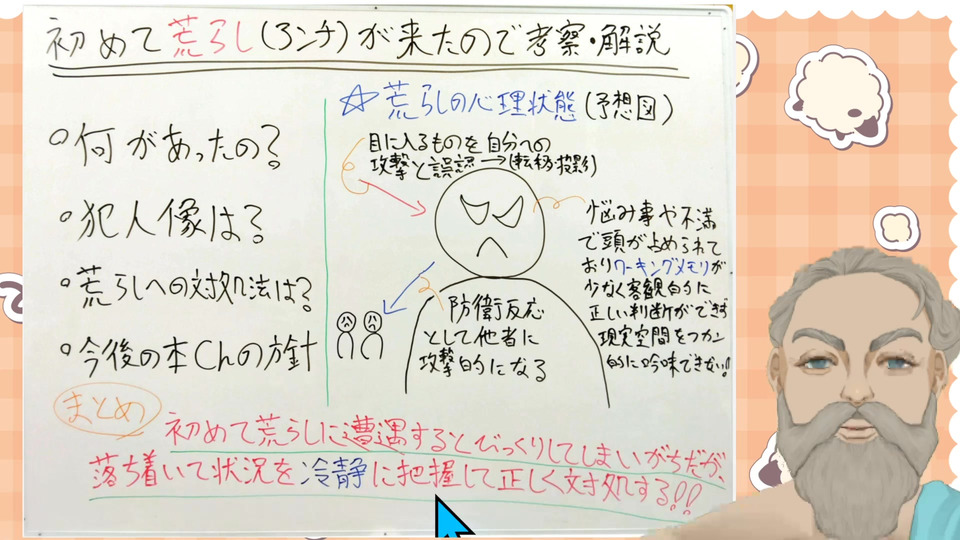 初めて荒らし(アンチ)が来たので考察・解説
○何があったの?
○犯人像は?
○荒らしへの対処法は?
○今後の本Chの方針
☆荒らしの心理状態(予想図)
目に入るものを自分への
攻撃と誤認→(転移・投影)
悩み事や不満
で頭が占められて
おりワーキングメモリが
少なく客観的に
正しい判断ができず
現実空間をつかって
的に吟味できない!
防衛反応
として他者に
攻撃的になる
まとめ
初めて荒らしに遭遇するとびっくりしてしまいがちだが、
落ち着いて状況を冷静に把握して正しく対処する!!